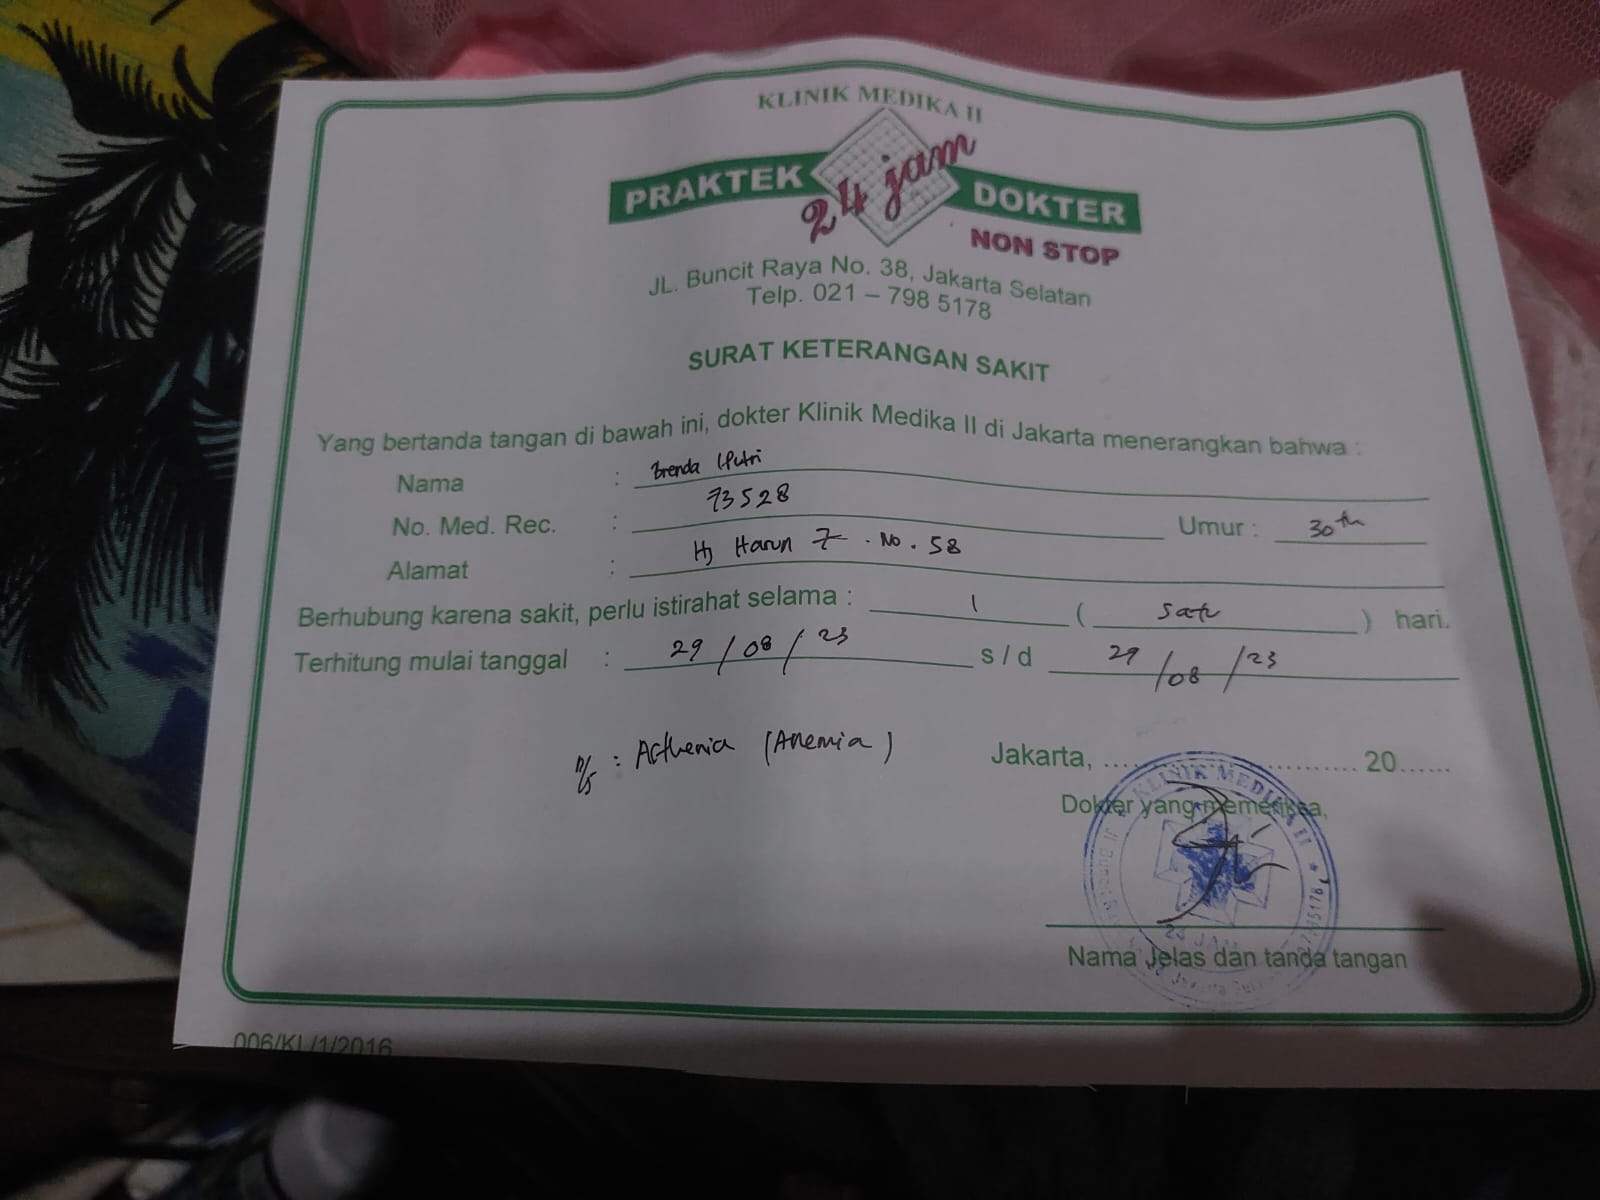 KLINIK MEDIKA II
PRAKTEK 24 jam DOKTER
NON STOP
JL. Buncit Raya No. 38, Jakarta Selatan
Telp. 021 – 798 5178
SURAT KETERANGAN SAKIT
Yang bertanda tangan di bawah ini, dokter Klinik Medika II di Jakarta menerangkan bahwa :
Nama : Brenda Putri
No. Med. Rec. : 73528 Umur : 30 th
Alamat : Hj Harun 7 . No. 58
Berhubung karena sakit, perlu istirahat selama : 1 ( satu ) hari.
Terhitung mulai tanggal : 29/08/23 s/d 29/08/23
: Asthenia (Anemia)
Jakarta, .............................. 20......
Dokter yang memeriksa,
KLINIK MEDIKA II
24 JAM
Nama Jelas dan tanda tangan
006/KL/1/2016